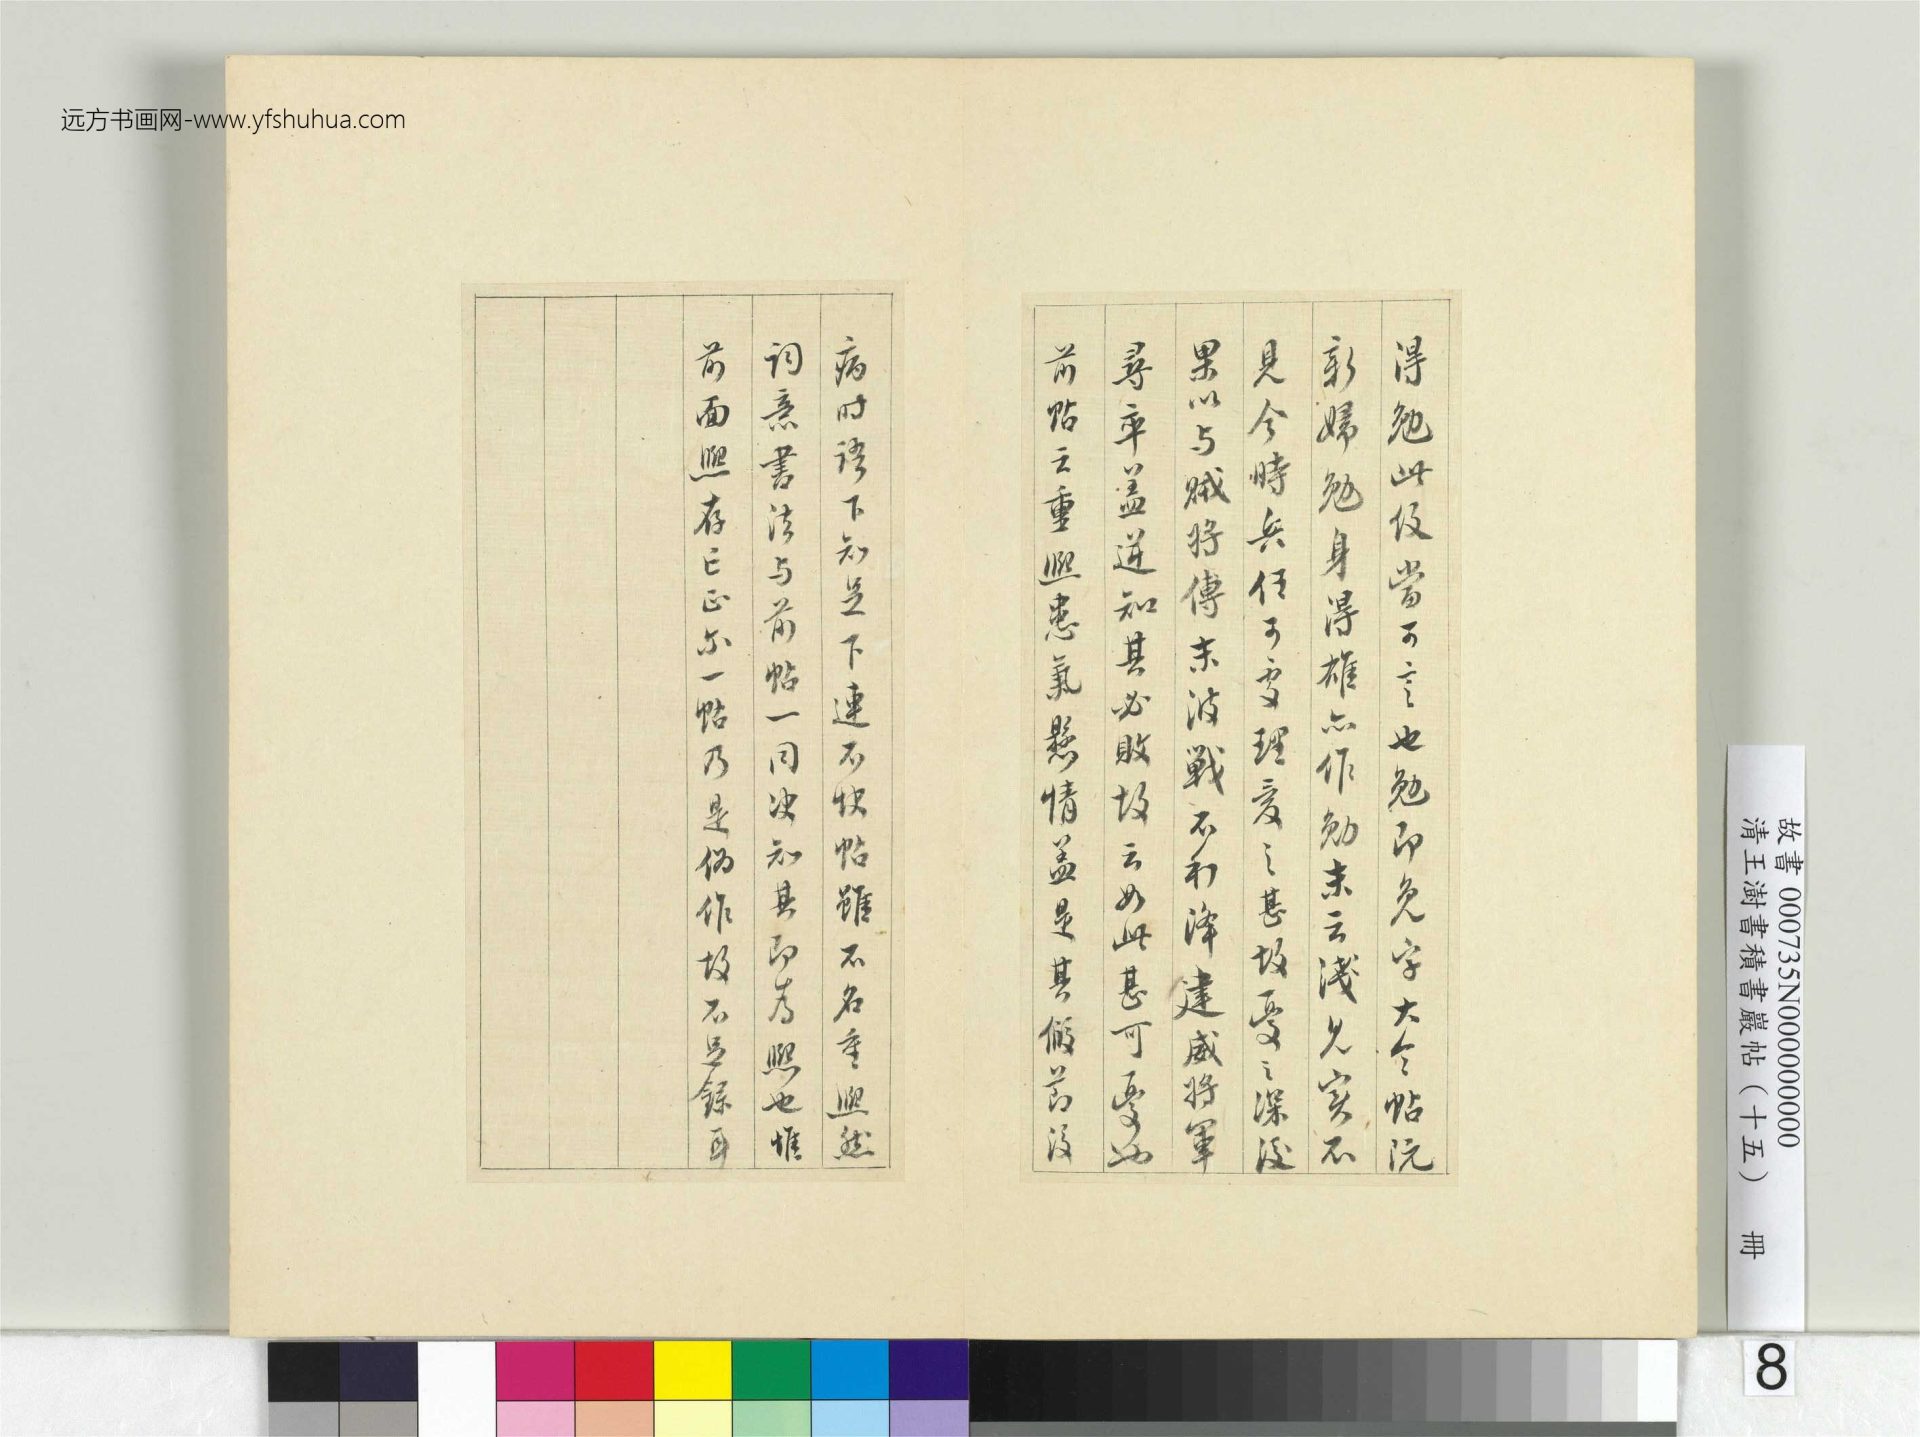 得勉此役當可言也勉即免字大令帖阮
新婦勉身得雄亦作勉末云淺見实不
見今時兵任可處理憂之甚故憂之深後
果以与賊將傅末波戰不利降建威將軍
尋卒蓋逆知其必敗故云如此甚可憂也
前帖云重熙患氣懸情蓋是其假節後
病时語下知足下連不快帖雖不名重熙然
詞意書法与前帖一同决知其即為熙也惟
前面熙存亡正尔一帖乃是偽作故不足錄耳
远方书画网-www.yfshuhua.com
故書 000735N000000000
清王澍書積書巖帖（十五） 冊
8